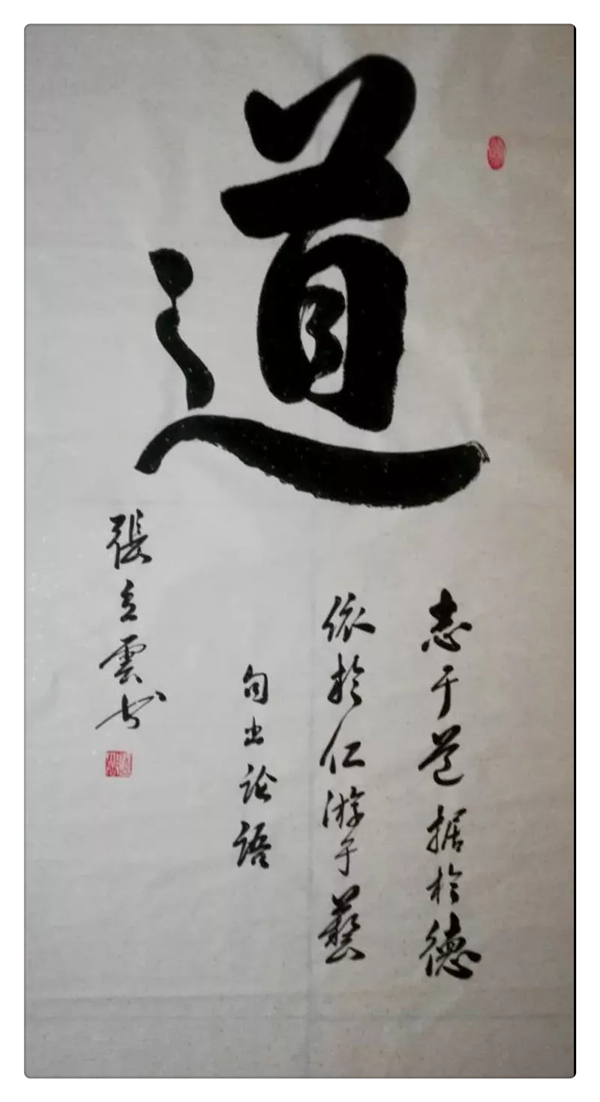 道
志于道据於德
依於仁游于藝
句出论语
張立雲书